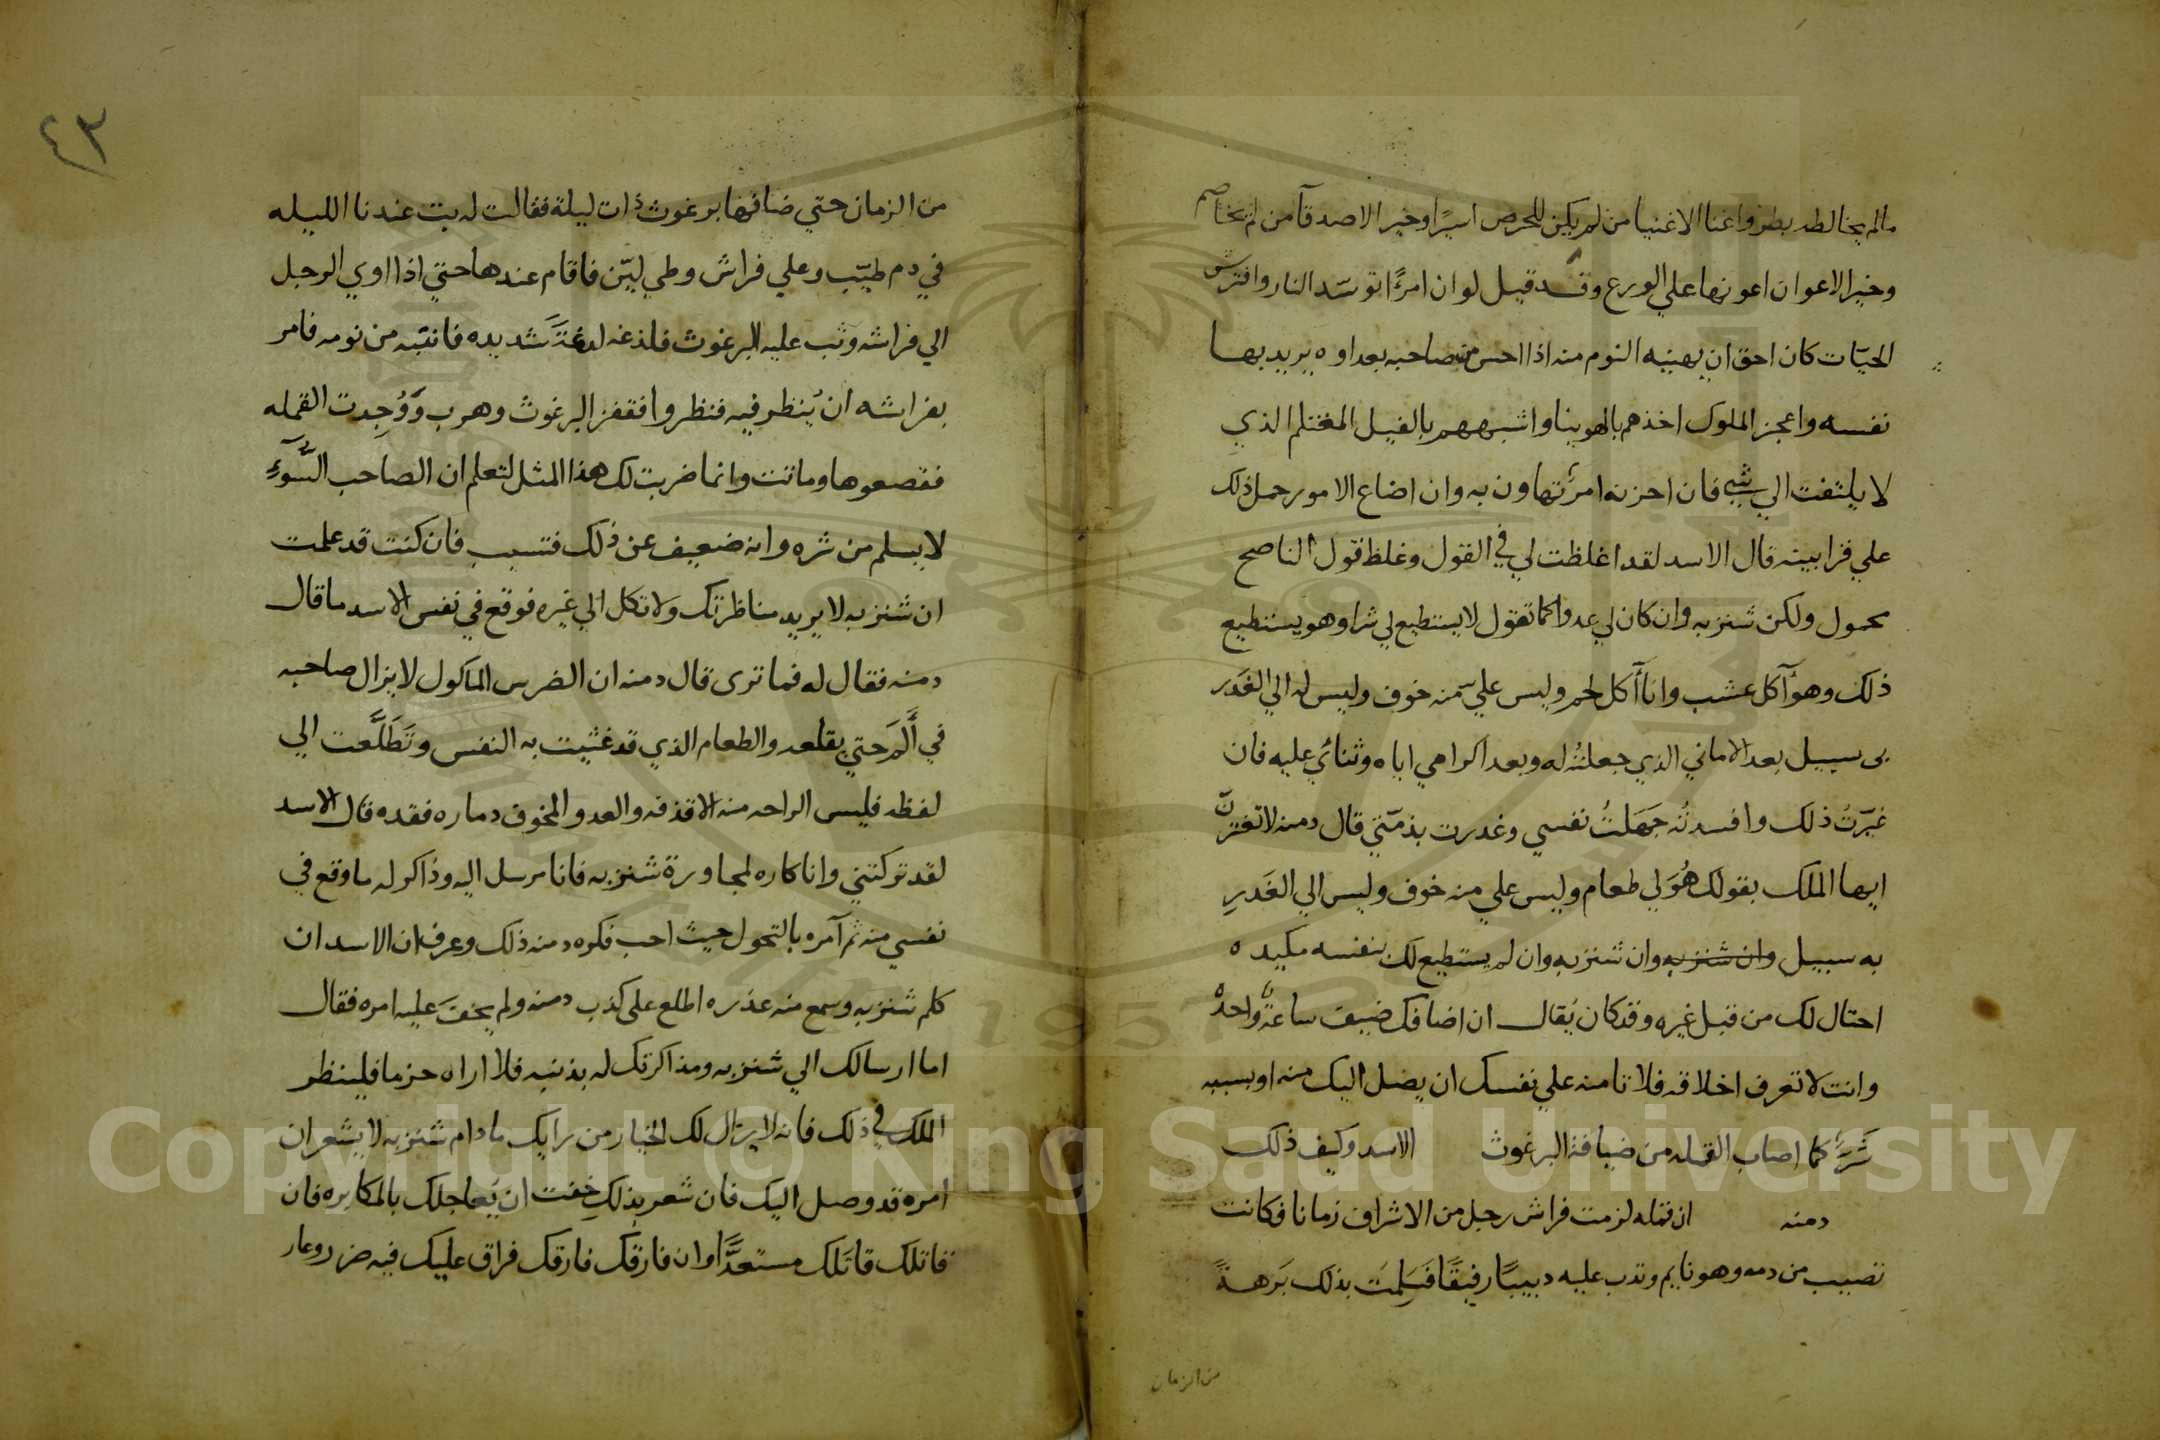 مالم يخالطه بطر واغنا الاغنيا من لم يكن للحرص اسيرا وخير الاصدقآ من لم يخاصم
وخير الاعوان اعونها علي الورع وقد قيل لو ان امرءًا توسّد النار وافترش
الحيّات كان احق ان يهنيه النوم منه اذا احس من صاحبه بعداوه يريد بها
نفسه واعجز الملوك اخذهم بالهوينا واشبههم بالفيل المغتلم الذي
لا يلتفت الي شي فان احزنه امرٌ تهاون به وان اضاع الامور حمل ذلك
علي قرابينه قال الاسد لقد اغلظت لي في القول وغلظ قول الناصح
محمول ولكن شنزبه وان كان لي عدوا كما تقول لا يستطيع لي شرا وهو يستطيع
ذلك وهو آكل عشب وانا أآكل لحم وليس عليّ منه خوف وليس له الي الغَدر
بى سبيل بعد الاماني الذي جعلتُ له وبعد اكرامي اياه وثنائي عليه فان
غيّرتُ ذلك وافسدتُه جَهَلتُ نفسي وغدرت بذمّتي قال دمنه لا تغترنّ
ايها الملك بقولك هُوَ لي طعام وليس علي منه خوف وليس الي الغَدرِ
به سبيل وان شنزبه وان شنزبه وان لم يستطيع لك بنفسه مكيده
احتال لك من قبل غيره وقد كان يُقال ان اضافك ضيف ساعةً واحدةً
وانت لا تعرف اخلاقه فلا تامنه علي نفسك ان يصل اليك منه او بسببه
شَرٌّ كما اصاب القمله من ضيافة البرغوث الاسد وكيف ذلك
دمنه ان قمله لزمت فراش رجل من الاشراف زمانا فكانت
تصيب من دمه وهو نايم وتدب عليه دبيبًا رفيقًا فَسَلِمَت بذلك بَرهةً
من الزمان
٤٣
من الزمان حتي ضافها برغوث ذات ليلة فقالت له بت عندنا الليله
في دم طيّب وعلي فراش وطي ليّن فاقام عندها حتي اذا اوي الرجل
الي فراشه وثب عليه البرغوث فلذغه لدغةً شديده فانتبه من نومه فامر
بفراشه ان يُنظر فيه فنظروا فقفز البرغوث وهرب وَوُجِدت القمله
فقصعوها وماتت وانما ضربت لك هذا المثل لتعلم ان الصاحب السّوَءِ
لا يسلم من شره وانه ضعيف عن ذلك فتسبب فان كنت قد علمت
ان شنزبه لا يريد مناظرتك ولا تكل الي غيره فوقع في نفس الاسد ما قال
دمنه فقال له فما ترى قال دمنه ان الضرس الماكول لا يزال صاحبه
في أَلَم حتي يقلعه والطعام الذي قد غثيت به النفس وتَطَلَّعت الي
لفظه فليس الراحه منه الا قذفه والعدو المخوف دماره فقده قال الاسد
لقد تركتني وانا كاره لمجاورة شنزبه فانا مرسل اليه وذاكر له ما وقع في
نفسي منه ثم آمره بالتحول حيث احب فكره دمنه ذلك وعرف ان الاسد ان
كلم شنزبه وسمع منه عذره اطلع على كذب دمنه ولم يخفَ عليه امره فقال
اما ارسالك الي شنزبه ومذاكرتك له بذنبه فلا اراه حزما فلينظر
الملك في ذلك فانه لا يزال لك الخيار من رايك ما دام شنزبه لا يشعر ان
امره قد وصل اليك فان شعر بذلك خفت ان يُعاجلك بالمكابره فان
قاتلك قاتَلك مستعدًّا وان فارقك فارقك فراق عليك فيه ضرر وعار
Copyright © King Saud University
1957